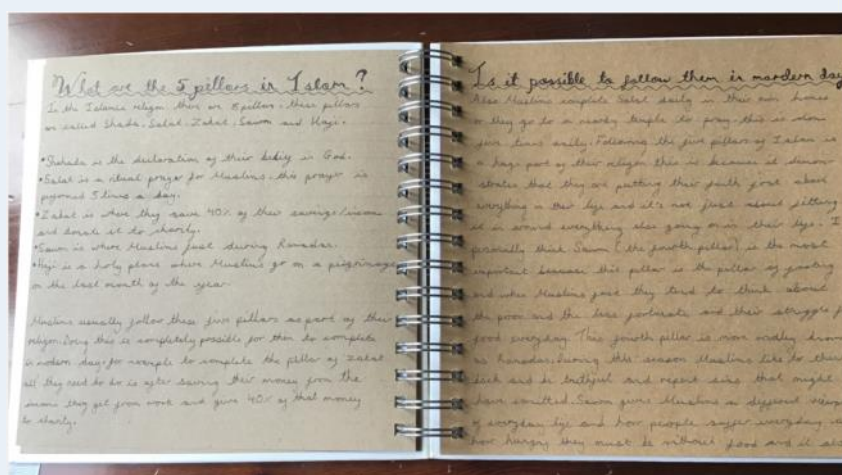 What are the 5 pillars in Islam?
In the Islamic religon there are 5 pillars. these pillars
are called Shada, Salat, Zakat, Sawm and Haji.
•Shahada is the declaration of their in God.
•Salat is a ritual prayer for Muslims. this prayer is
5 times a day.
•Zakat is where they save 40% of their savings/income
and donate it to charity.
•Sawm is where Muslims fast during Ramadan.
•Haji is a holy place where Muslims go on a pilgrimage
in the last month of the year.
Muslims usually follow these five pillars as part of their
religon. Doing this is completely possible for them to complete
in modern day. for example to complete the pillar of zakat
all they need to do is after saving their money from the
income they get from work and give 40% of that money
to charity.
Is it possible to follow them in mordern day
Also Muslims complete Salat daily in their own homes
or they go to a nearby temple to pray. this is done
five times daily. Following the five pillars of Islam is
a huge part of their religon this is because it demon
strates that they are putting their faith first above
everything in their life and it's not just about fitting
it in around everything else going on in their life. I
personally think Sawm (the fourth pillar) is the most
important because this pillar is the pillar of fasting
and when Muslims fast they tend to think about
the poor and the less fortunate and their struggle f
food everyday. This fourth pillar is more known
as Ramadan. During this season Muslims like to
back and be truthful and repent sins that might
have comitted. Sawm gives Muslims a different
of everyday life and how people suffer everyday
how hungry they must be without food and it als